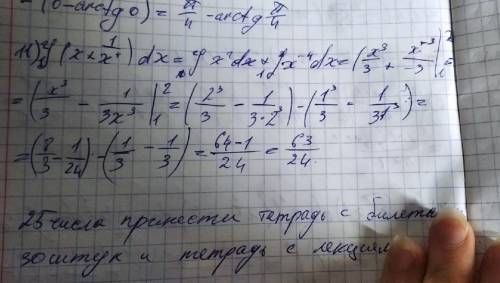 -(0-arctg 0) = π/4 - arctg π/4
11) ∫(x + 1/x⁴) dx = ∫ x² dx + ∫ x⁻⁴ dx = (x³/3 + x⁻³/-3 |²₁ =
= (x³/3 - 1/3x³ |²₁ = (2³/3 - 1/3·2³) - (1³/3 - 1/31³) =
= (8/3 - 1/24) - (1/3 - 1/3) = 64-1/24 = 63/24.
25 числа принести тетрадь с билеты
30 штук и тетрадь с лекциям